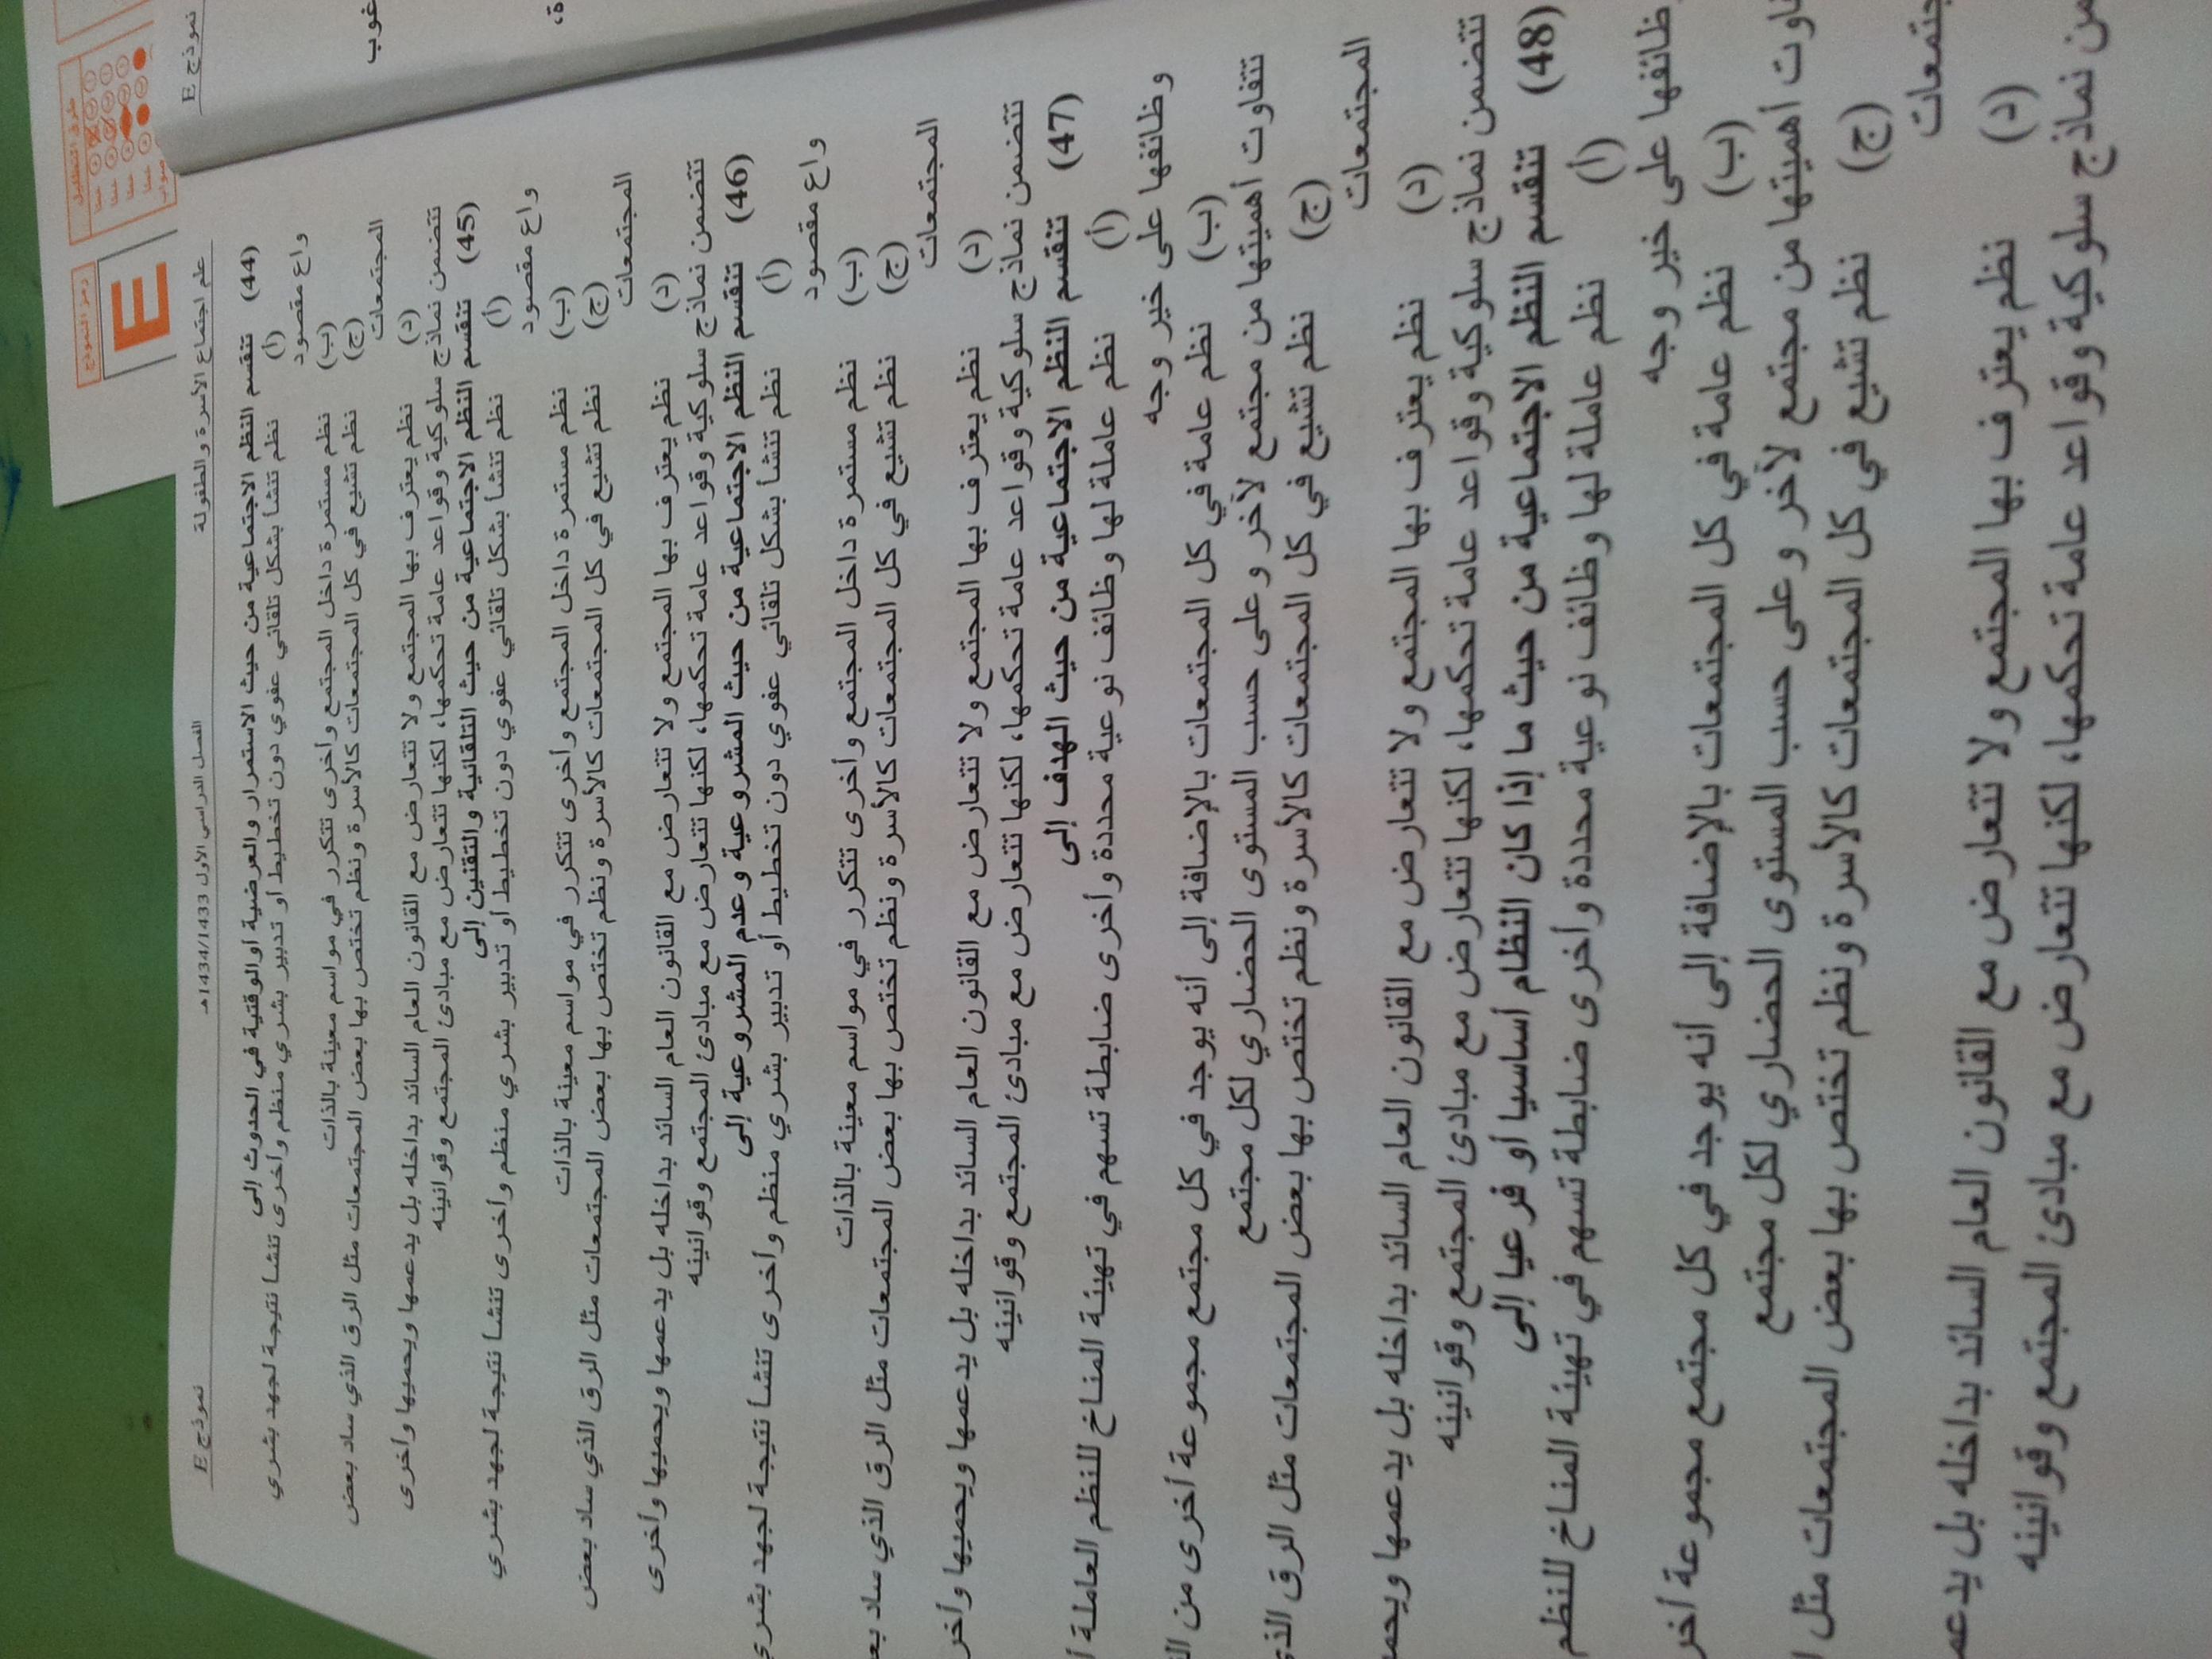 رمز النموذج
E
طرق التظليل
خطأ
خطأ
خطأ
خطأ
صواب
نموذج E
غوب
ة،
علم اجتماع الأسرة والطفولة
الفصل الدراسي الأول 1434/1433هـ
نموذج E
(44) تنقسم النظم الاجتماعية من حيث الاستمرار والعرضية أو الوقتية في الحدوث إلى
(أ) نظم تنشأ بشكل تلقائي عفوي دون تخطيط أو تدبير بشري منظم وأخرى تنشأ نتيجة لجهد بشري
واع مقصود
(ب) نظم مستمرة داخل المجتمع وأخرى تتكرر في مواسم معينة بالذات
(ج) نظم تشيع في كل المجتمعات كالأسرة ونظم تختص بها بعض المجتمعات مثل الرق الذي ساد بعض
المجتمعات
(د) نظم يعترف بها المجتمع ولا تتعارض مع القانون العام السائد بداخله بل يدعمها ويحميها وأخرى
تتضمن نماذج سلوكية وقواعد عامة تحكمها، لكنها تتعارض مع مبادئ المجتمع وقوانينه
(45) تنقسم النظم الاجتماعية من حيث التلقائية والتقنين إلى
(أ) نظم تنشأ بشكل تلقائي عفوي دون تخطيط أو تدبير بشري منظم وأخرى تنشأ نتيجة لجهد بشري
واع مقصود
(ب) نظم مستمرة داخل المجتمع وأخرى تتكرر في مواسم معينة بالذات
(ج) نظم تشيع في كل المجتمعات كالأسرة ونظم تختص بها بعض المجتمعات مثل الرق الذي ساد بعض
المجتمعات
(د) نظم يعترف بها المجتمع ولا تتعارض مع القانون العام السائد بداخله بل يدعمها ويحميها وأخرى
تتضمن نماذج سلوكية وقواعد عامة تحكمها، لكنها تتعارض مع مبادئ المجتمع وقوانينه
(46) تنقسم النظم الاجتماعية من حيث المشروعية وعدم المشروعية إلى
(أ) نظم تنشأ بشكل تلقائي عفوي دون تخطيط أو تدبير بشري منظم وأخرى تنشأ نتيجة لجهد بشري
واع مقصود
(ب) نظم مستمرة داخل المجتمع وأخرى تتكرر في مواسم معينة بالذات
(ج) نظم تشيع في كل المجتمعات كالأسرة ونظم تختص بها بعض المجتمعات مثل الرق الذي ساد بع
المجتمعات
(د) نظم يعترف بها المجتمع ولا تتعارض مع القانون العام السائد بداخله بل يدعمها ويحميها وأخر
تتضمن نماذج سلوكية وقواعد عامة تحكمها، لكنها تتعارض مع مبادئ المجتمع وقوانينه
(47) تنقسم النظم الاجتماعية من حيث الهدف إلى
(أ) نظم عاملة لها وظائف نوعية محددة وأخرى ضابطة تسهم في تهيئة المناخ للنظم العاملة
وظائفها على خير وجه
(ب) نظم عامة في كل المجتمعات بالإضافة إلى أنه يوجد في كل مجتمع مجموعة أخرى من
تتفاوت أهميتها من مجتمع لآخر وعلى حسب المستوى الحضاري لكل مجتمع
(ج) نظم تشيع في كل المجتمعات كالأسرة ونظم تختص بها بعض المجتمعات مثل الرق الذ
المجتمعات
(د) نظم يعترف بها المجتمع ولا تتعارض مع القانون العام السائد بداخله بل يدعمها ويحم
تتضمن نماذج سلوكية وقواعد عامة تحكمها، لكنها تتعارض مع مبادئ المجتمع وقوانينه
(48) تنقسم النظم الاجتماعية من حيث ما إذا كان النظام أساسيا أو فرعيا إلى
(أ) نظم عاملة لها وظائف نوعية محددة وأخرى ضابطة تسهم في تهيئة المناخ للنظم
ظائفها على خير وجه
(ب) نظم عامة في كل المجتمعات بالإضافة إلى أنه يوجد في كل مجتمع مجموعة أخر
اوت أهميتها من مجتمع لآخر وعلى حسب المستوى الحضاري لكل مجتمع
(ج) نظم تشيع في كل المجتمعات كالأسرة ونظم تختص بها بعض المجتمعات مثل
جتمعات
(د) نظم يعترف بها المجتمع ولا تتعارض مع القانون العام السائد بداخله بل يدعم
من نماذج سلوكية وقواعد عامة تحكمها، لكنها تتعارض مع مبادئ المجتمع وقوانينه